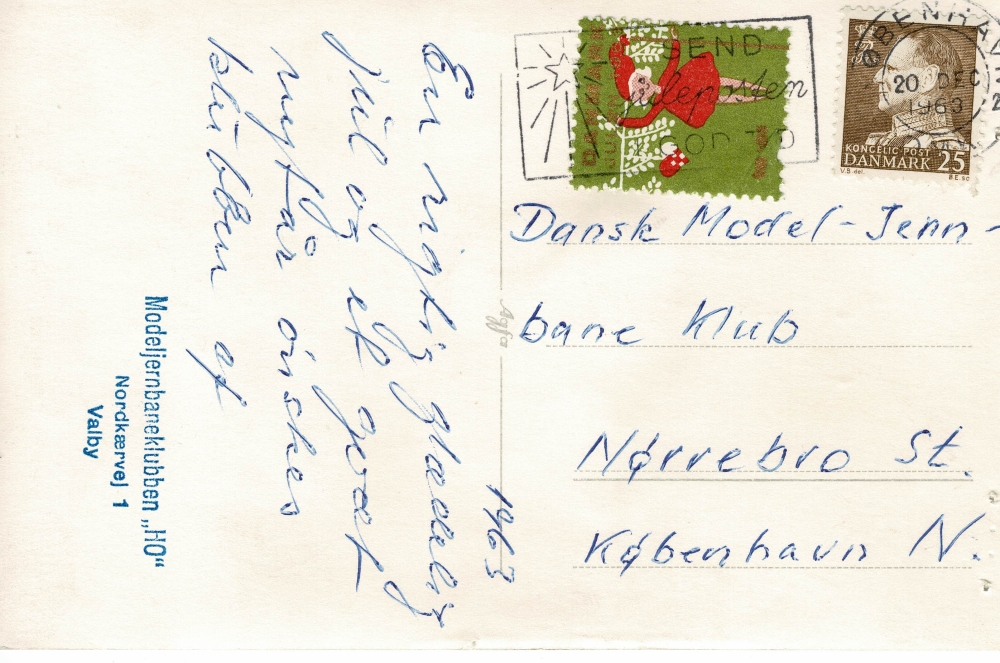 En rigtig glædelig
jul og et godt
nytår ønskes
klubben af
Modeljernbaneklubben „HO“
Nordkærvej 1
Valby
1963
Agfa
SEND
juleposten
I GOD TID
20 DEC
1963
KONGELIG POST
DANMARK 25
V.B del.
B.E. sc
Dansk Model-Jern-
bane Klub
Nørrebro St.
København N.